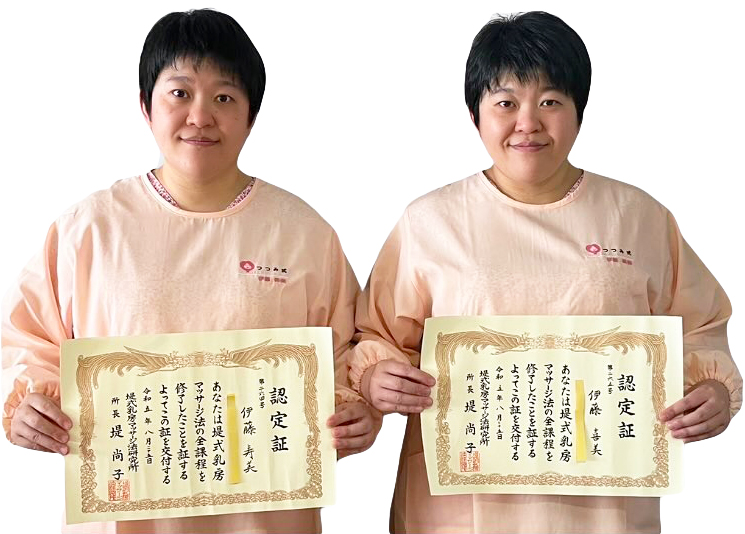 つつみ式
認定証
第二六四号
伊藤 寿美
あなたは堤式乳房
マッサージ法の全課程を
修了したことを証する
よってこの証を交付する
令和五年八月二十五日
堤式乳房マッサージ法研究所
所長 堤 尚子
つつみ式
認定証
第二六五号
伊藤 喜美
あなたは堤式乳房
マッサージ法の全課程を
修了したことを証する
よってこの証を交付する
令和五年八月二十五日
堤式乳房マッサージ法研究所
所長 堤 尚子